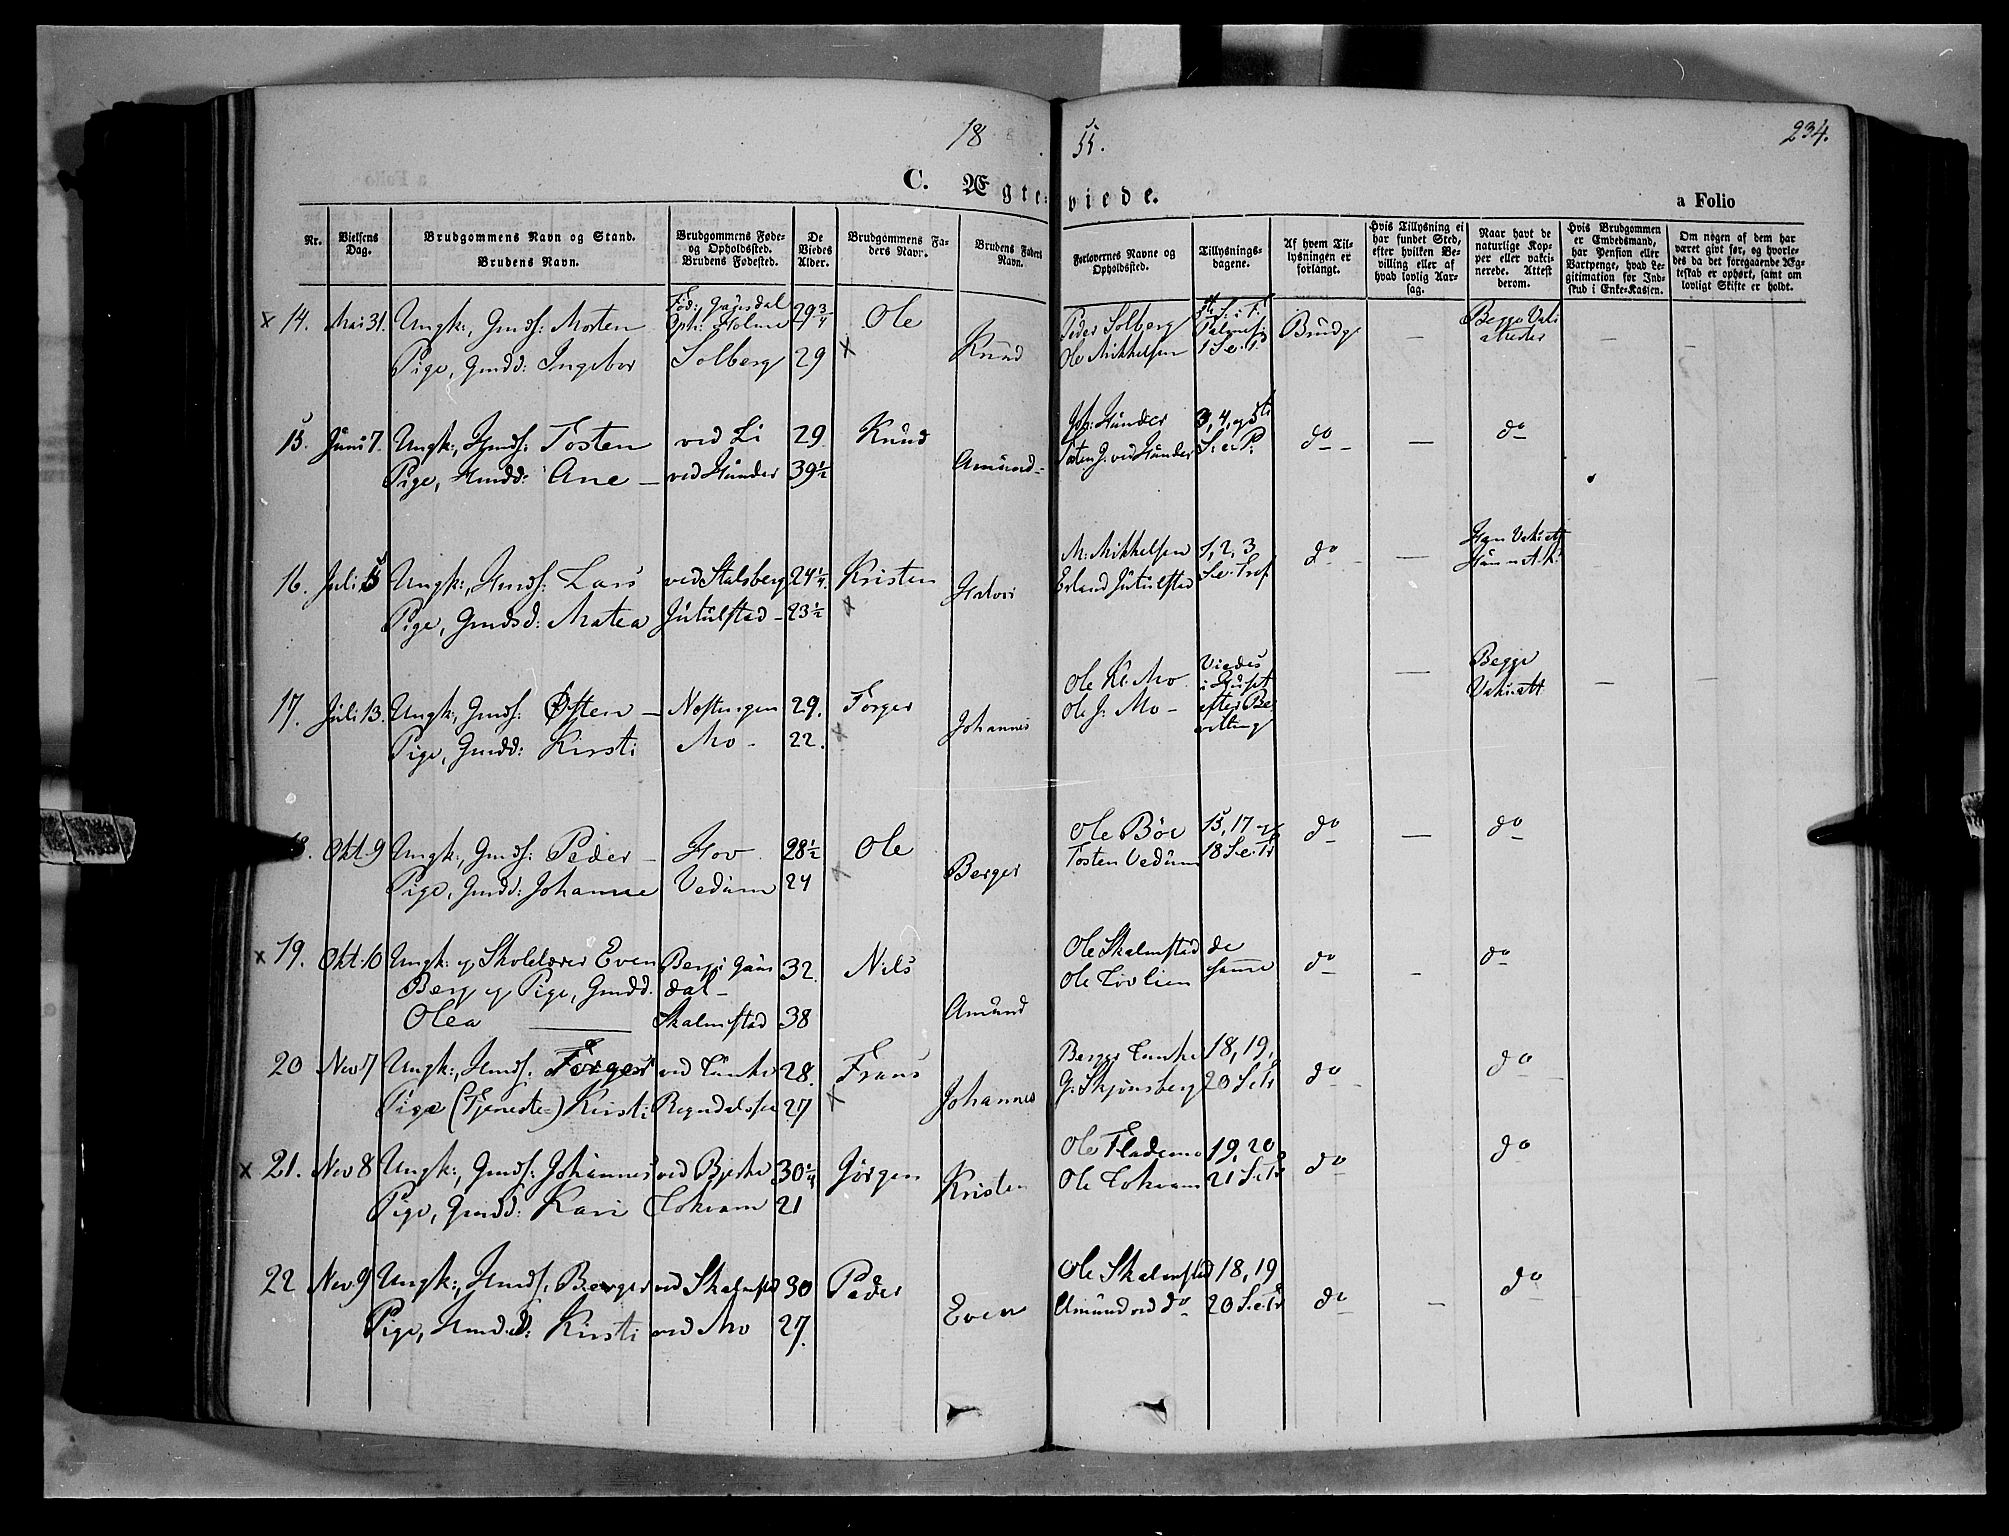 18 55. 234.
C. Ægteviede. a Folio
Nr. Vielsens Dag. Brudgommens Navn og Stand. Brudens Navn. Brudgommens Føde- og Opholdssted. Brudens Fødested. De Viedes Alder. Brudgommens Faders Navn. Brudens Faders Navn. Forlovernes Navne og Opholdssted. Tillysningsdagene. Af hvem Tillysningen er forlangt. Hvis Tillysning ei har fundet Sted, efter hvilken Bevilling eller af hvad lovlig Aarsag. Naar havt de naturlige Kopper eller vakcinerede. Attest derom. Hvis Brudgommen er Embedsmand, har Pension eller Vartpenge, hvad Legitimation for Indskud i Enke-Kassen. Om nogen af dem har været givt før, og hvorledes da det foregaaende Ægteskab er ophørt, samt om lovligt Skifte er holdt.
x 14. Mai 31. Ungk:, Gmds: Morten Fød: Gausdal Oph: Holme 29 3/4 Ole Peder Solberg Brudg —
Pige, Gmdd: Ingebor Solberg 29 x Knud Ole Mikkelsen
15. Juni 7. Ungk:, Hmds: Tosten ved Li 29 Knud Hunder 3, 4, og 5te do — do
Pige, Hmdd: Ane — ved Hunder 39 1/2 Amund Tosten J. ved Hunder S. e. P.
16. Juli 5 Ungk:, Hmds: Lars ved Stalsberg 24 1/4 Kristen M. Mikkelsen 1, 2, 3 do —
Pige, Gmdsd: Matea Jutulstad — 23 1/2 x Halvor Erland Jutulstad S. e. Tref.
17. Juli 13. Ungk:, Gmds: Østen — Nestungen 29. Torger Ole Kr. Mo Viedes i Huset efter Bevilling — Begge Vak: att.
Pige, Gmdd: Kirsti Mo — 22. x Johannes Ole J. Mo —
18. Okt. 9 Ungk:, Gmds: Peder — Hov 28 1/2 Ole Ole Böe 15, 17 do — do
Pige, Gmdd: Johanne Vedum 24 x Berger Tosten Vedum 18 S. e. Tr
x 19. Okt. 10 Ungk: og Skolelærer Even Berg i Gaus 32. Nils Ole Skalmstad de do — do
Berg og Pige, Gmdd. dal — Ole Lövlien samme
Olea — Skalmstad 38 Amund
20 Nov 7 Ungk:, Hmds: Torger ved Lunke 28. Frans Berger Lunke 18, 19, do do
Pige (Tjeneste-) Kirsti 27 x Johannes G. Skjönsberg 20 S. e. Tr
x 21. Nov 8 Ungk:, Gmds: Johannes ved Bjerke 30 1/4 Jörgen Ole Flademo 19, 20 do do
Pige, Gmdd: Kari Lokvam 21 Kristen Ole Lokvam 21 S. e. Tr
22 Nov 9 Ungk:, Hmds: Berger ved Skalmstad 30 Peder Ole Skalmstad 18, 19 do — do
Pige, Hmdd: Kirsti ved Mo 27. Even Amund ved do 20 S. e. Tr